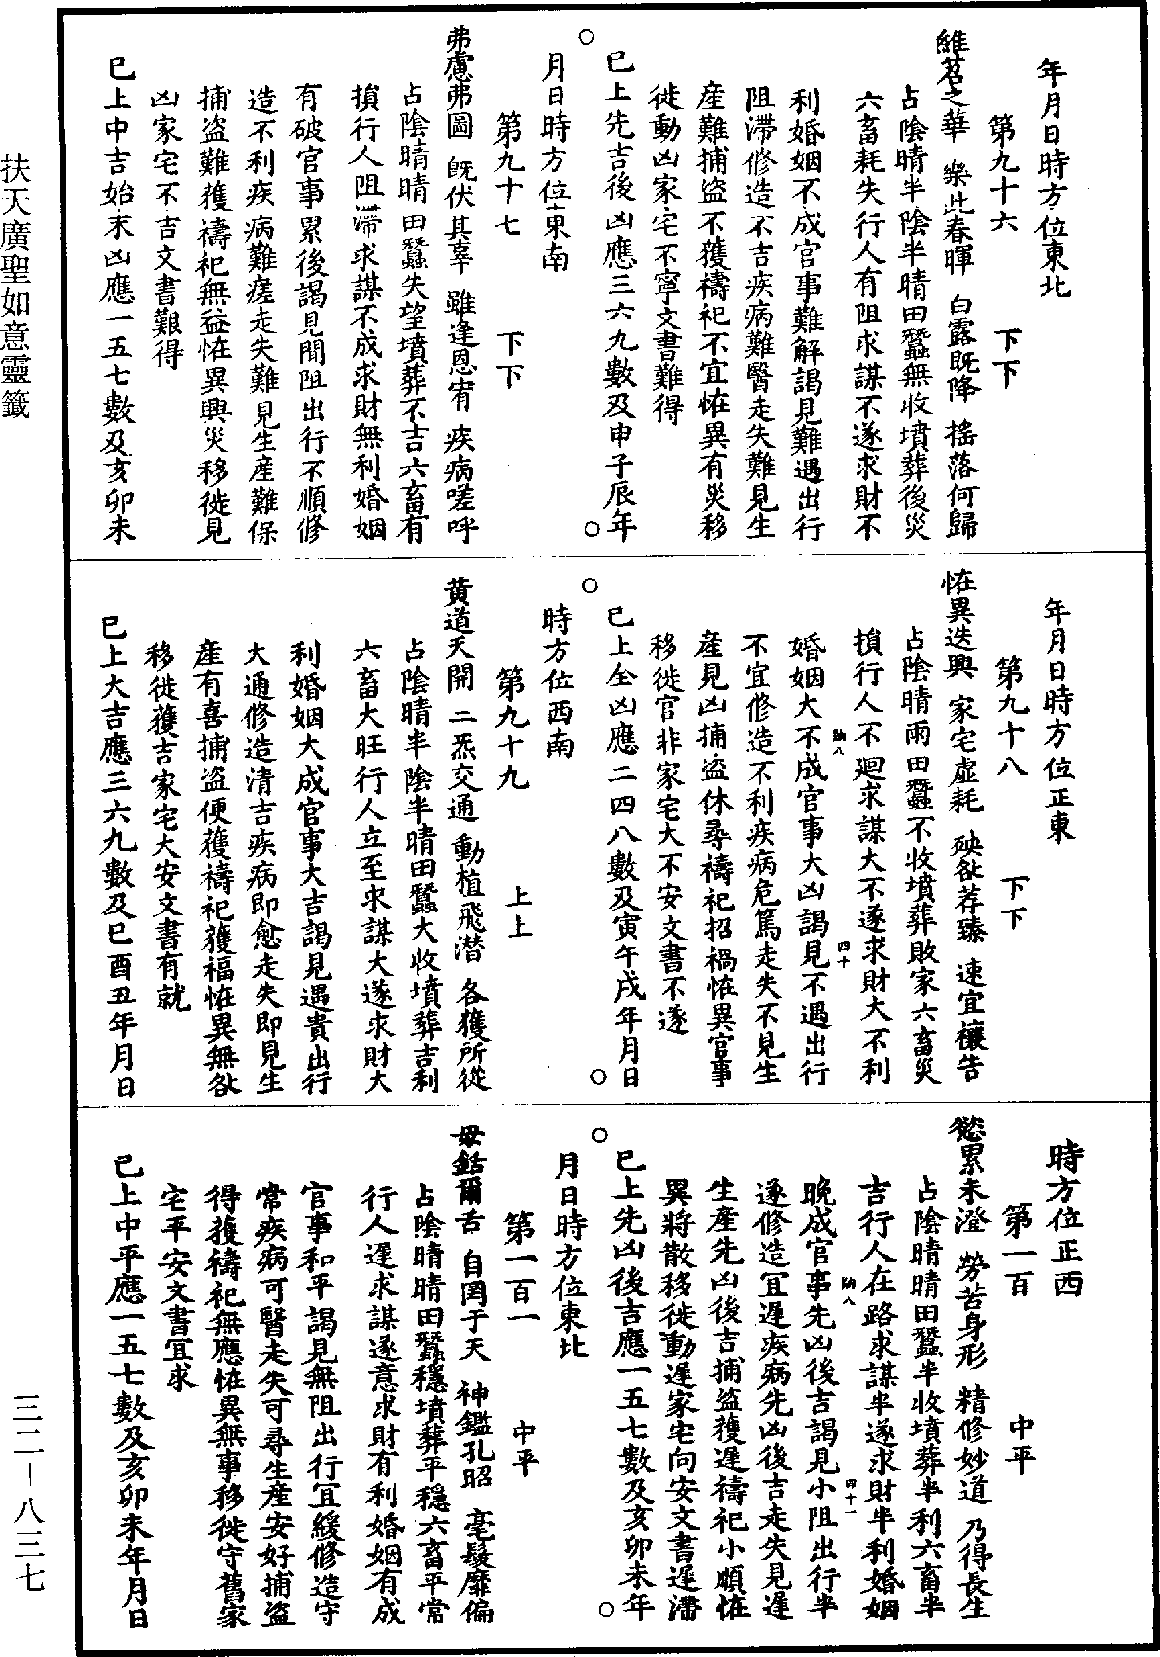 年月日時方位東北
第九十六　下下
雖茗之華　樂此春暉　白露既降　搖落何歸
占陰晴半陰半晴田蠶無收墳葬後災
六畜耗失行人有阻求謀不遂求財不
利婚姻不成官事難解謁見難遇出行
阻滯修造不吉疾病難醫走失難見生
產難捕盜不獲禱祀不宜恠異有災移
徙動凶家宅不寧文書難得
巳上先吉後凶應三六九數及申子辰年
月日時方位東南
第九十七　下下
弗慮弗圖　既伏其辜　雖逢恩宥　疾病嗟呼
占陰晴晴田蠶失望墳葬不吉六畜有
損行人阻滯求謀不成求財無利婚姻
有破官事累後謁見間阻出行不順修
造不利疾病難瘥走失難見生產難保
捕盜難獲禱祀無益恠異興災移徙見
凶家宅不吉文書艱得
巳上中吉始末凶應一五七數及亥卯未
年月日時方位正東
第九十八　下下
恠異迭興　家宅虛耗　殃咎荐臻　速宜禳告
占陰晴雨田蠶不收墳葬敗家六畜災
損行人不廻求謀大不遂求財大不利
婚姻大不成官事大凶謁見不遇出行
不宜修造不利疾病危篤走失不見生
產見凶捕盜休尋禱祀招禍恠異官事
移徙官非家宅大不安文書不遂
巳上全凶應二四八數及寅午戌年月日
時方位西南
第九十九　上上
黃道天開　二炁交通　動植飛潛　各獲所從
占陰晴半陰半晴田蠶大收墳葬吉利
六畜大旺行人立至求謀大遂求財大
利婚姻大成官事大吉謁見遇貴出行
大通修造清吉疾病即愈走失即見生
產有喜捕盜便獲禱祀獲福恠異無咎
移徙獲吉家宅大安文書有就
巳上大吉應三六九數及巳酉丑年月日
時方位正西
第一百　中平
慾累未澄　勞苦身形　精修妙道　乃得長生
占陰晴晴田蠶半收墳葬半利六畜半
吉行人在路求謀半遂求財半利婚姻
晚成官事先凶後吉謁見小阻出行半
遂修造宜遲疾病先凶後吉走失見遲
生產先凶後吉捕盜獲遲禱祀小願恠
異將散移徙動遲家宅向安文書遲滯
巳上先凶後吉應一五七數及亥卯未年
月日時方位東北
第一百一　中平
毋銛爾舌　自罔于天　神鑑孔昭　毫髮靡偏
占陰晴晴田蠶穩墳葬平穩六畜平常
行人遲求謀遂意求財有利婚姻有成
官事和平謁見無阻出行宜緩修造守
常疾病可醫走失可尋生產安好捕盜
得獲禱祀無應恠異無事移徙守舊家
宅平安文書宜求
巳上中平應一五七數及亥卯未年月日
四十
四十一
扶天廣聖如意靈籤
三二－八三七